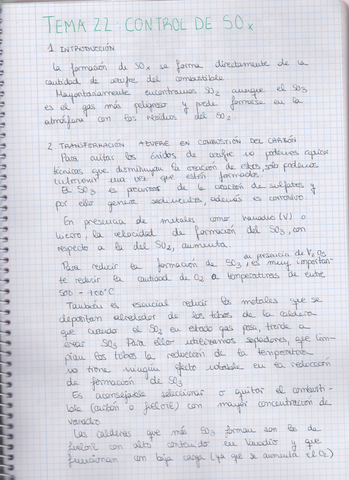 TEMA 22: CONTROL DE SOx
1 INTRODUCCIÓN
La formación de SOx se forma directamente de la
cantidad de azufre del combustible
Mayoritariamente encontramos SO2 aunque el SO3
es el gas más peligroso y puede formarse en la
atmósfera con los residuos del SO2.
2 TRANSFORMACIÓN AZUFRE EN COMBUSTIÓN DEL CARBÓN
Para evitar los óxidos de azufre no podemos aplicar
técnicas que disminuyan la creación de estos, solo podemos
intervenir una vez que estén formados.
El SO3 es precursor de la creación de sulfatos y
por ello genera sedimentos, además es corrosivo
En presencia de metales como Vanadio (V) o
hierro, la velocidad de formación del SO3, con
respecto a la del SO2, aumenta
en presencia de V2O5
Para reducir la formación de SO3, es muy importan-
te reducir la cantidad de O2 a temperaturas de entre
500 - 700°C
También es esencial reducir los metales que se
depositan alrededor de los tubos de la caldera
que cuando el SO2 en estado gas pasa, tiende a
crear SO3 Para ello utilizamos sopladores, que lim-
pian los tubos la reducción de la temperatura
no tiene ningún efecto notable en la reducción
de formación de SO3
Es aconsejable seleccionar o quitar el combusti-
ble (carbón o fueloil) con mayor concentración de
vanadio
Las calderas que más SO3 forman son las de
fueloil con alto contenido en Vanadio y que
funcionan con baja carga (ya que se aumenta el O2)